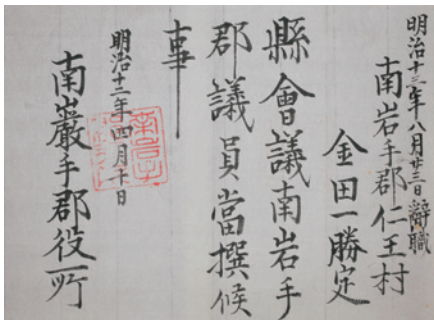 明治十三年八月廿三日辭職
南岩手郡仁王村
金田一勝定
縣會議南岩手
郡議員當撰候
事
明治十二年四月十日
南巖手郡役所